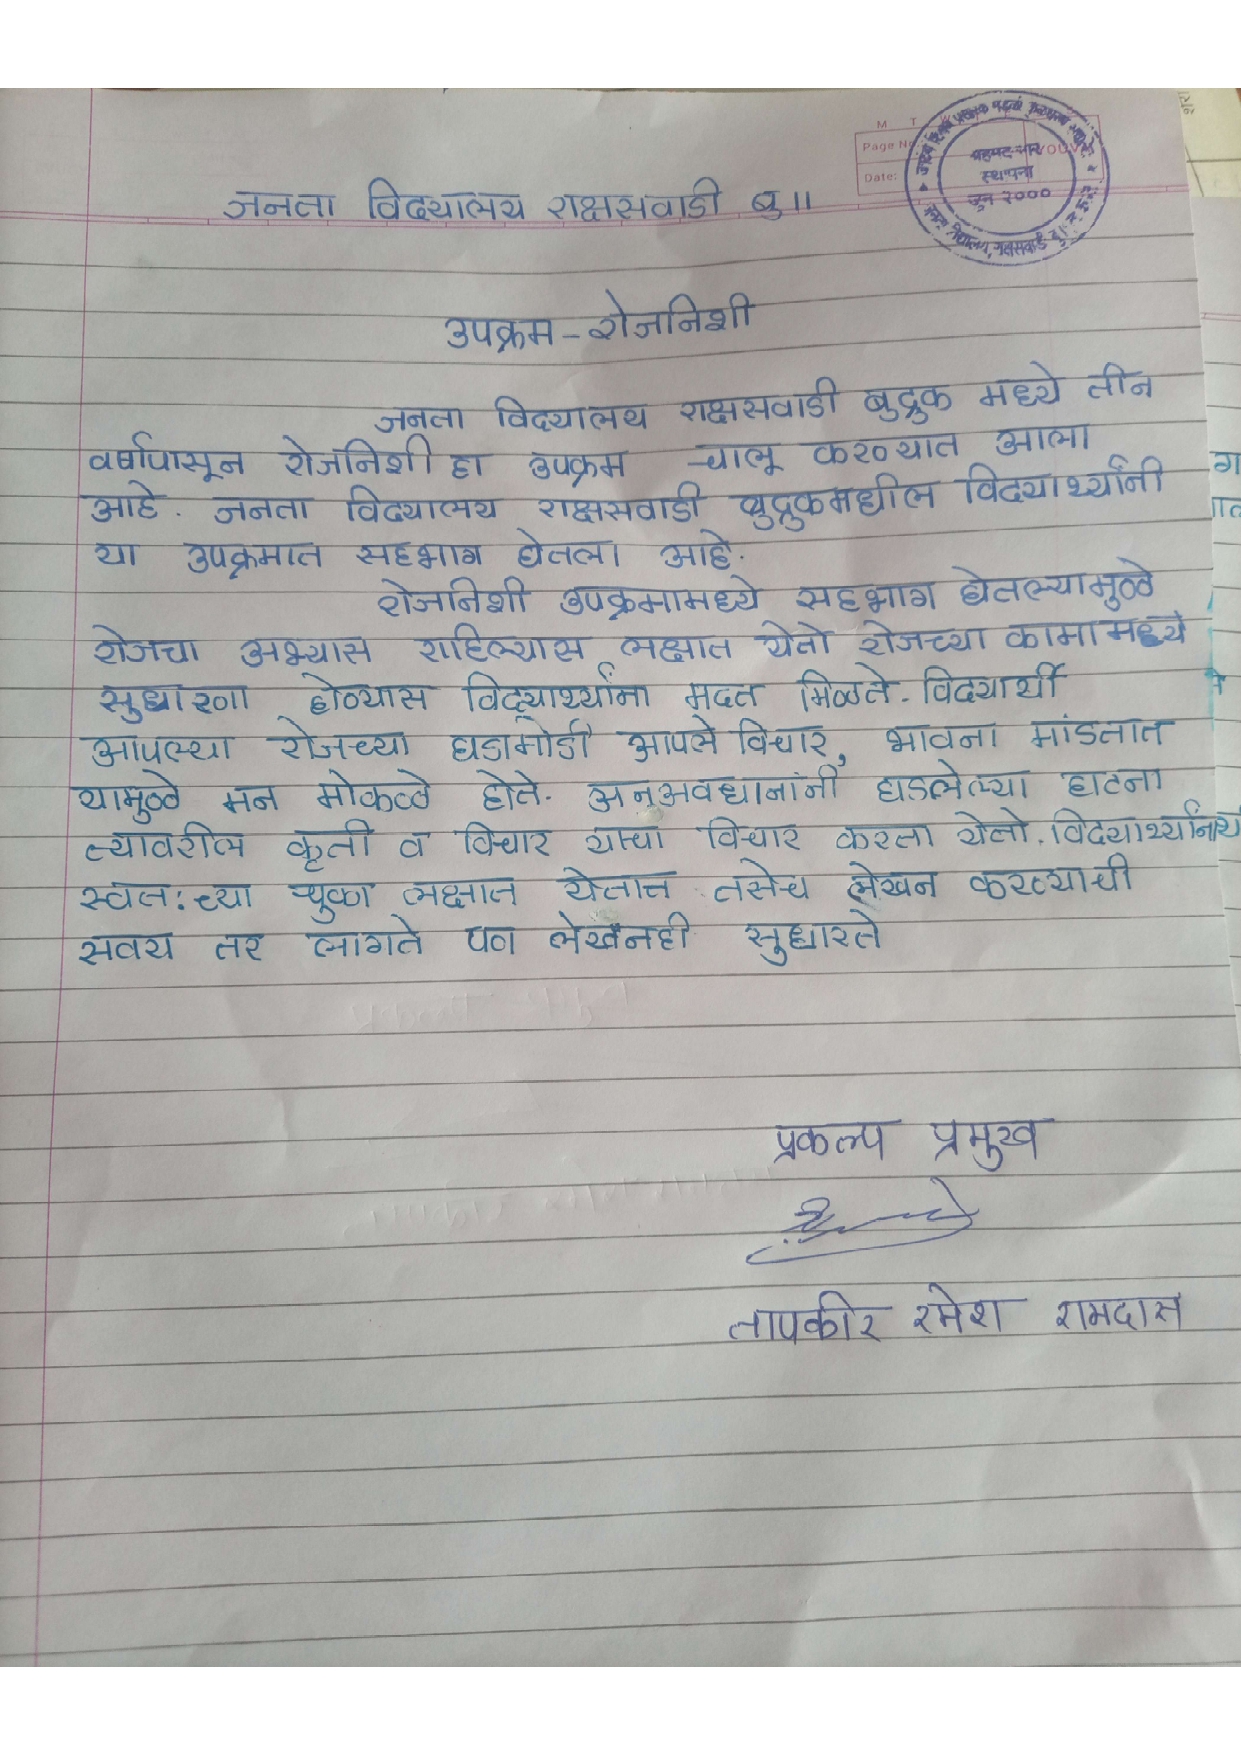 जनता विद्यालय राक्षसवाडी बु॥
M T
Page No
YOUVA
Date:
स्थापना
जून २०००
उपक्रम - रोजनिशी
जनता विद्यालय राक्षसवाडी बुद्रुक मध्ये तीन
वर्षापासून रोजनिशी हा उपक्रम चालू करण्यात आला
आहे. जनता विद्यालय राक्षसवाडी बुद्रुकमधील विद्यार्थ्यांनी
या उपक्रमात सहभाग घेतला आहे.
रोजनिशी उपक्रमामध्ये सहभाग घेतल्यामुळे
रोजचा अभ्यास राहिल्यास लक्षात येतो रोजच्या कामामध्ये
सुधारणा होण्यास विद्यार्थ्यांना मदत मिळते. विद्यार्थी
आपल्या रोजच्या घडामोडी आपले विचार, भावना मांडतात
यामुळे मन मोकळे होते. अनअवधानांनी घडलेल्या घटना
त्यावरील कृती व विचार याचा विचार करता येतो. विद्यार्थ्यांना
स्वत:च्या चुका लक्षात येतात तसेच लेखन करण्याची
सवय तर लागते पण लेखनही सुधारते
प्रकल्प प्रमुख
तापकीर रमेश रामदास